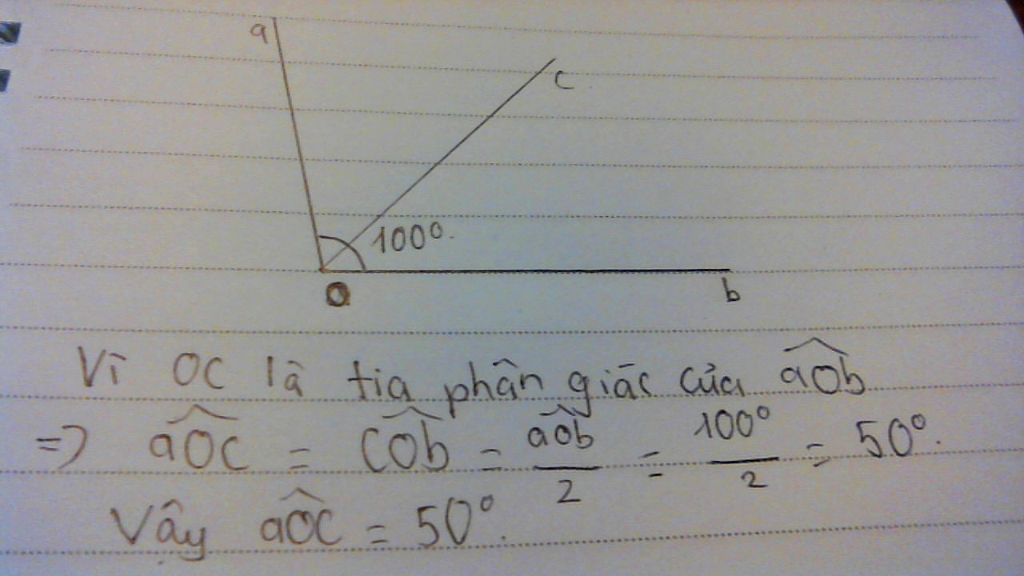 a
c
100°.
O
b
Vì OC là tia phân giác của aOb
=> aOC = COb = aOb/2 = 100°/2 = 50°.
Vậy aOC = 50°.